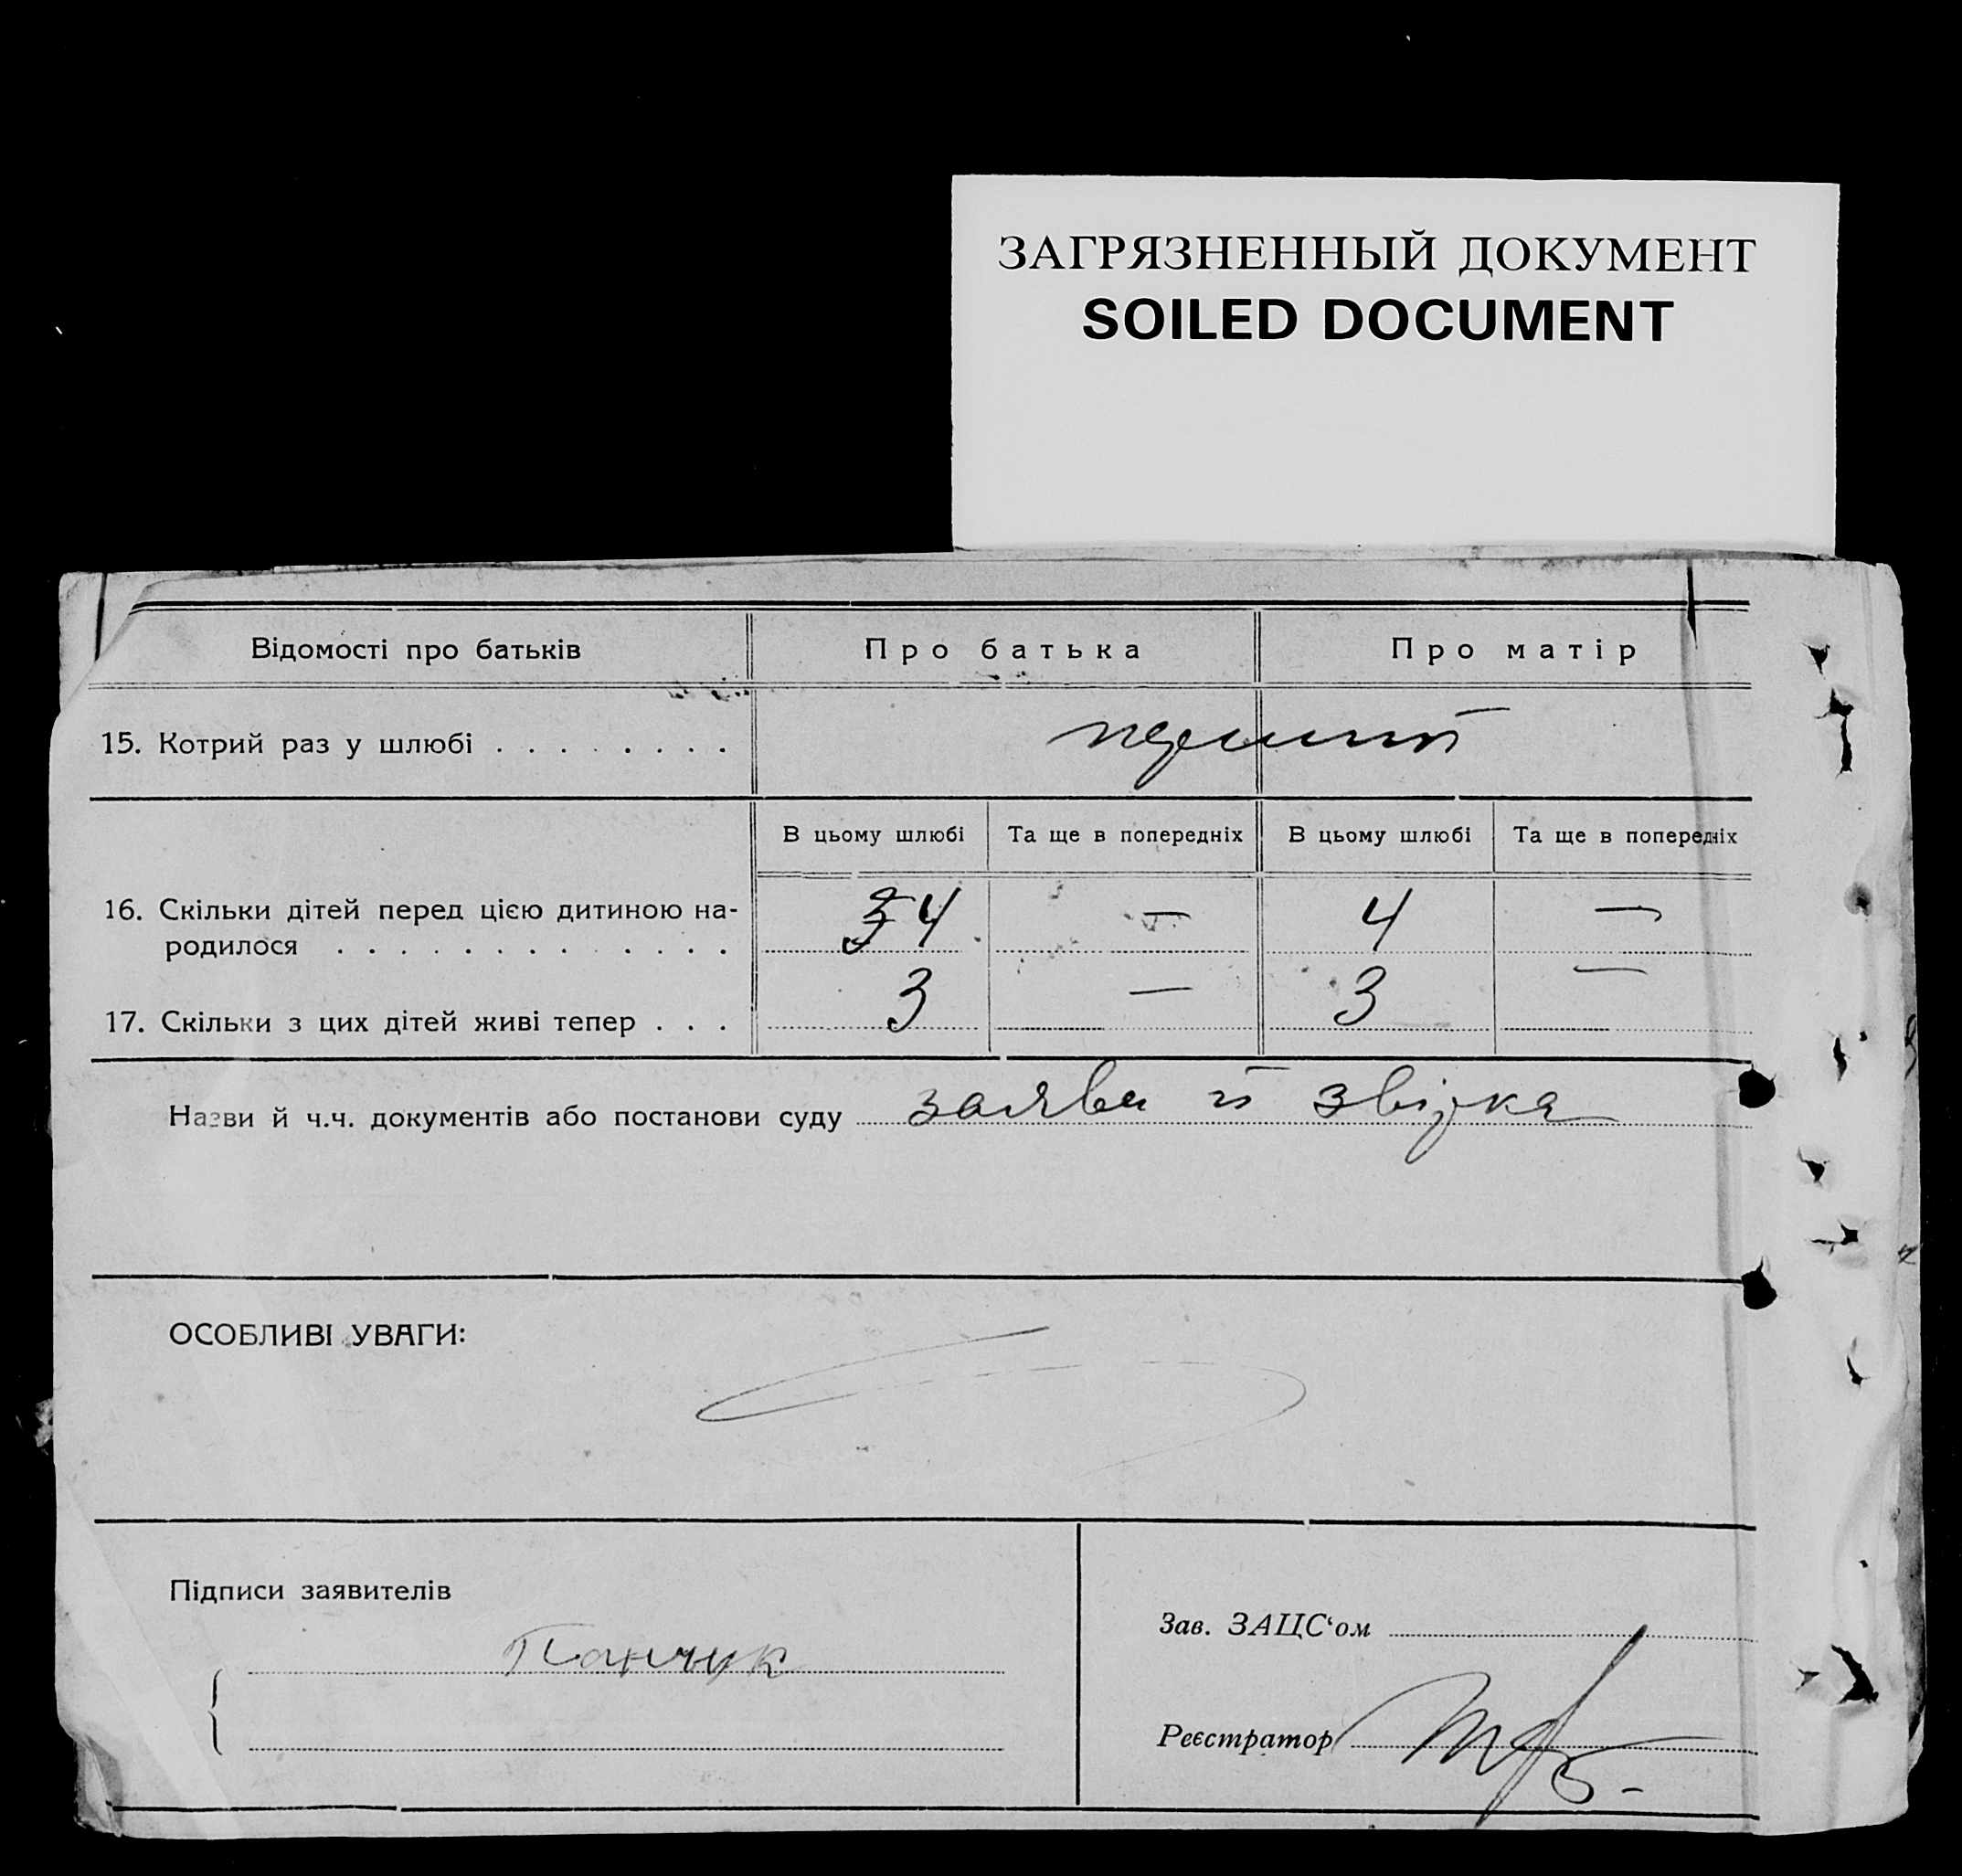 ЗАГРЯЗНЕННЫЙ ДОКУМЕНТ
SOILED DOCUMENT
Відомості про батьків Про батька Про матір
15. Котрий раз у шлюбі . . . . . . . . перший
В цьому шлюбі Та ще в попередніх В цьому шлюбі Та ще в попередніх
16. Скільки дітей перед цією дитиною на-
родилося . . . . . . . . . . . . . 4 — 4 —
17. Скільки з цих дітей живі тепер . . . 3 — 3 —
Назви й ч.ч. документів або постанови суду заява й звірка
ОСОБЛИВІ УВАГИ:
Підписи заявителів
Панчук
Зав. ЗАЦС‘ом
Реєстратор